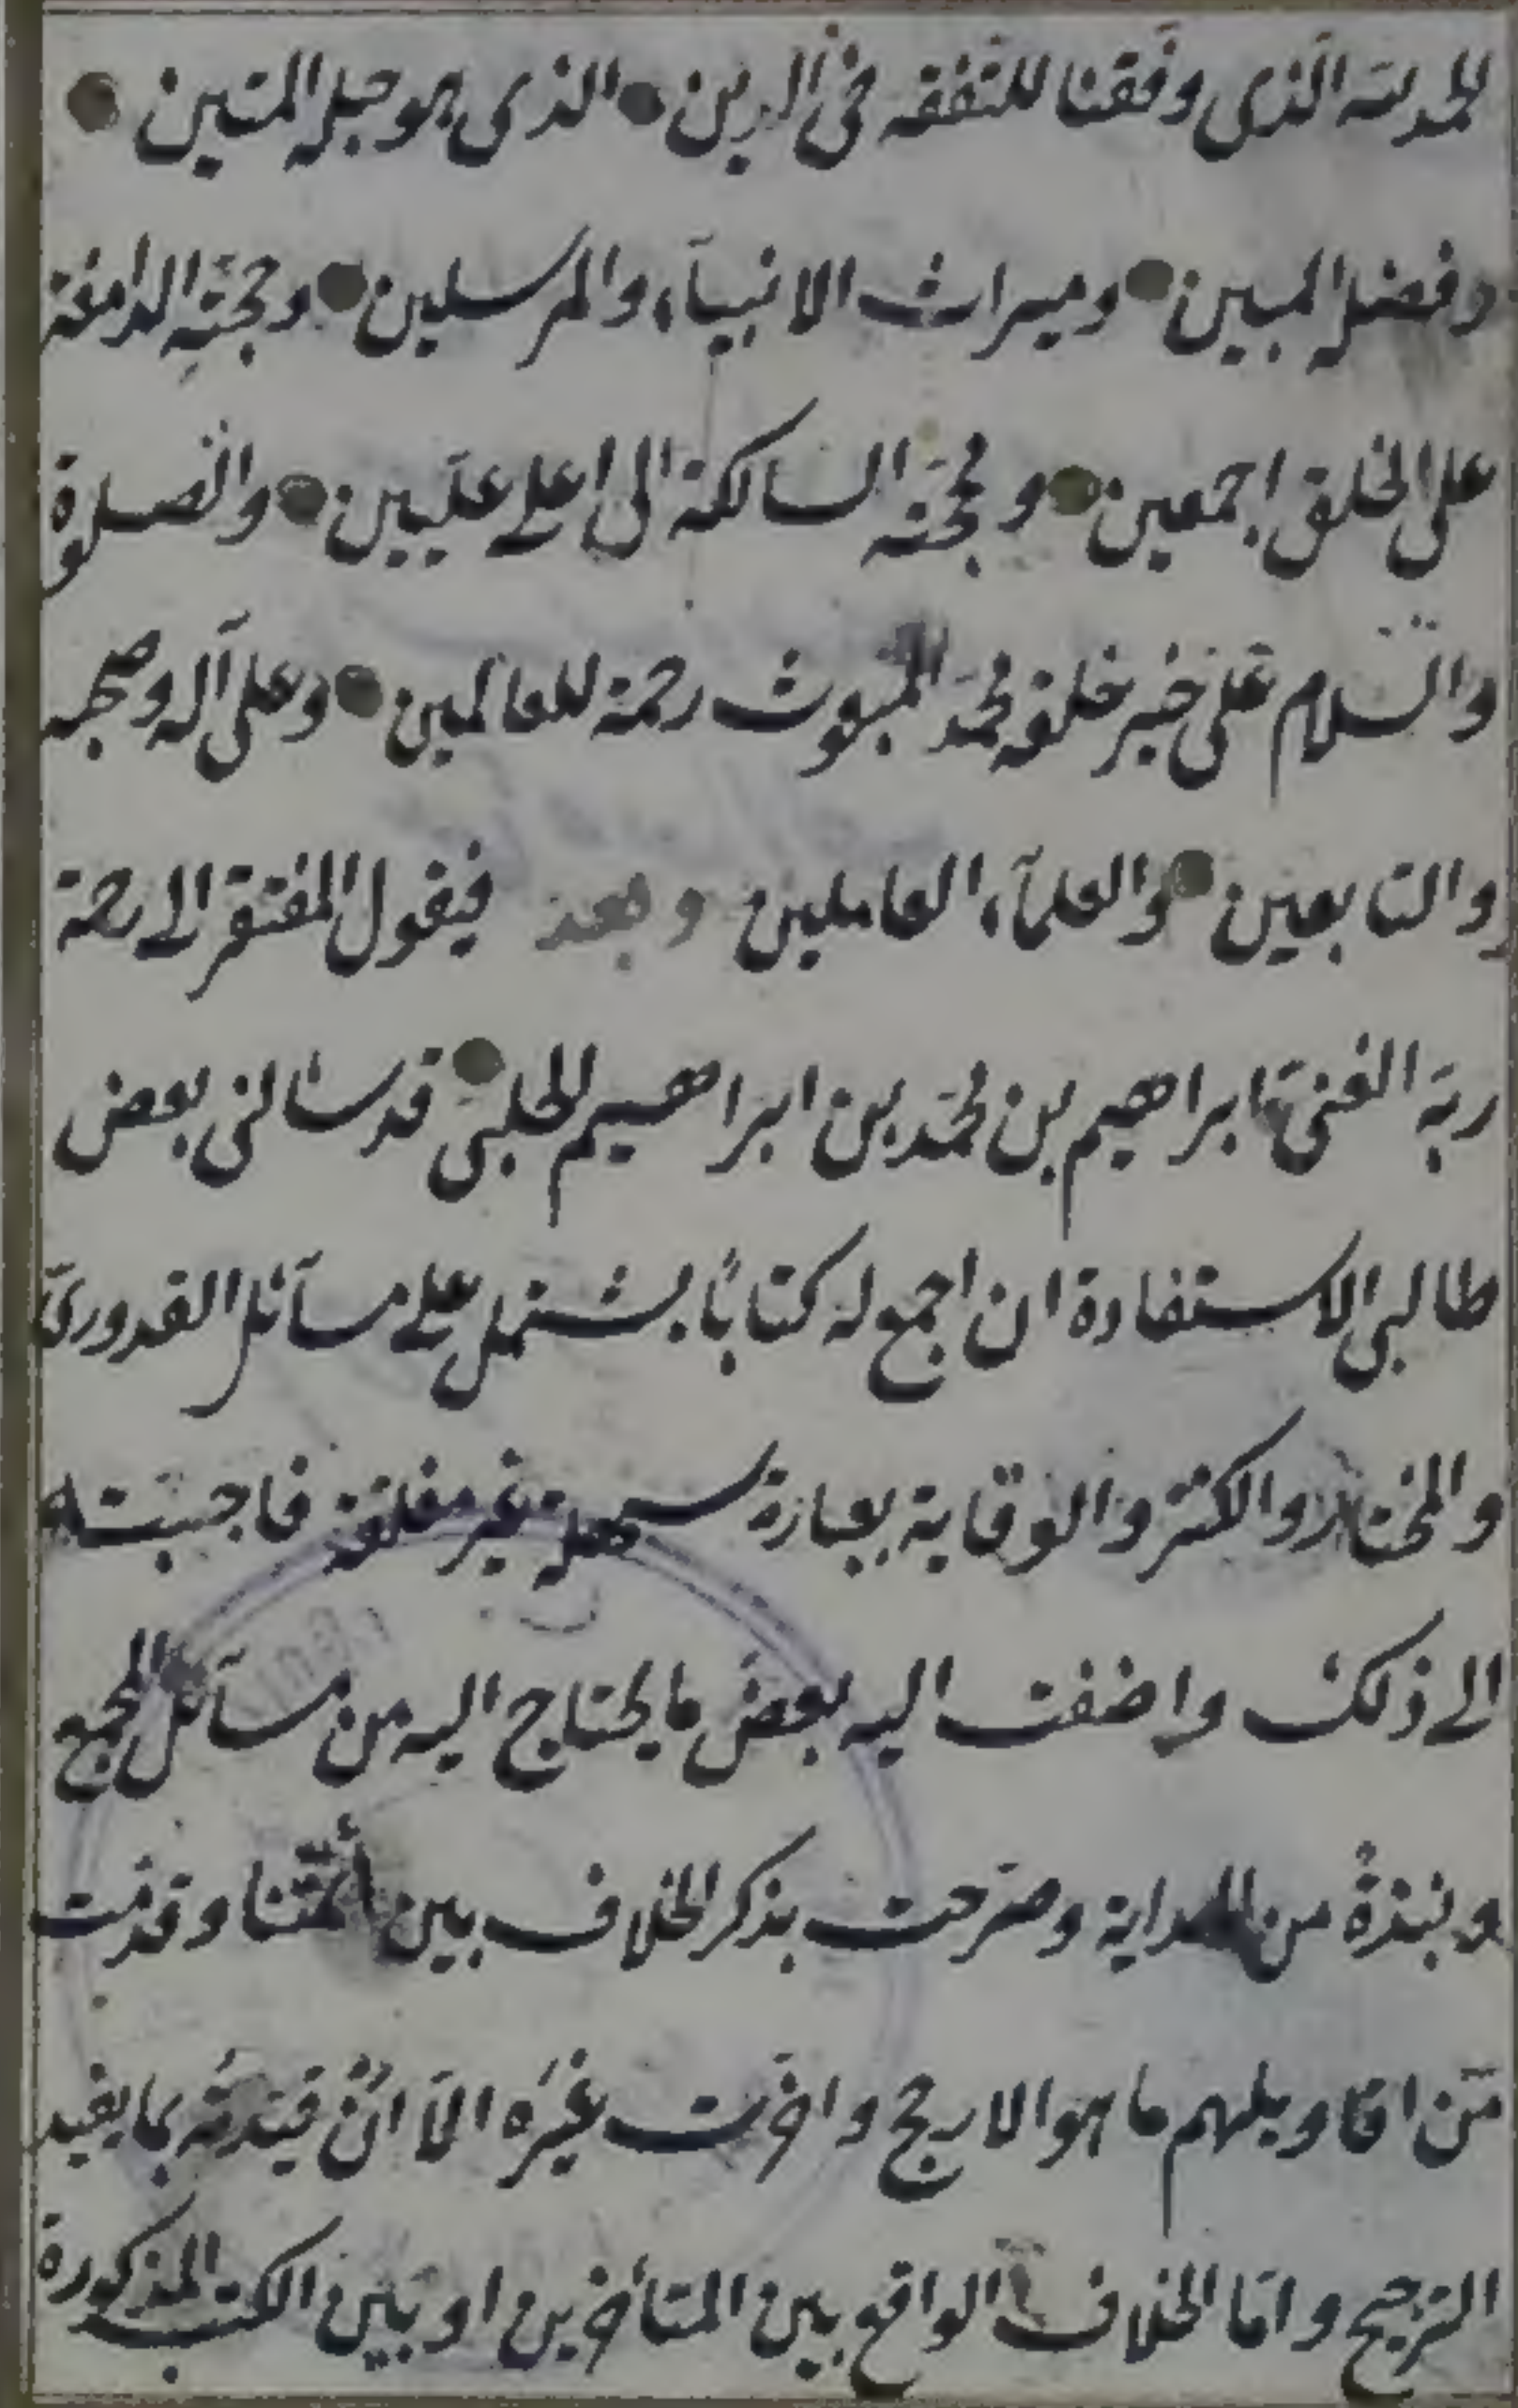 الحمد لله الذی وفقنا للتفقه فی الدین الذی هو حبله المتین
وفضله المبین ومیراث الانبیآء والمرسلین وحجته الدامغة
علی الخلق اجمعین ومحجته السالکة الی اعلی علیین والصلوة
والسلام علی خیر خلقه محمد المبعوث رحمة للعالمین وعلی آله وصحبه
والتابعین والعلمآء العاملین وبعد فیقول المفتقر الی رحمة
ربه الغنی ابراهیم بن محمد بن ابراهیم الحلبی قد سألنی بعض
طالبی الاستفادة ان اجمع له کتابًا یشتمل علی مسآئل القدوری
والمختار والکنز والوقایة بعبارة سهلة غیر مغلقة فاجبته
الی ذلک واضفت الیه بعض ما یحتاج الیه من مسآئل المجمع
ونبذة من الهدایة وصرحت بذکر الخلاف بین أئمتنا وقدمت
من اقاویلهم ما هو الارجح واخرت غیره الا ان قیدته بما یفید
الترجیح واما الخلاف الواقع بین المتأخرین او بین الکتب المذکورة